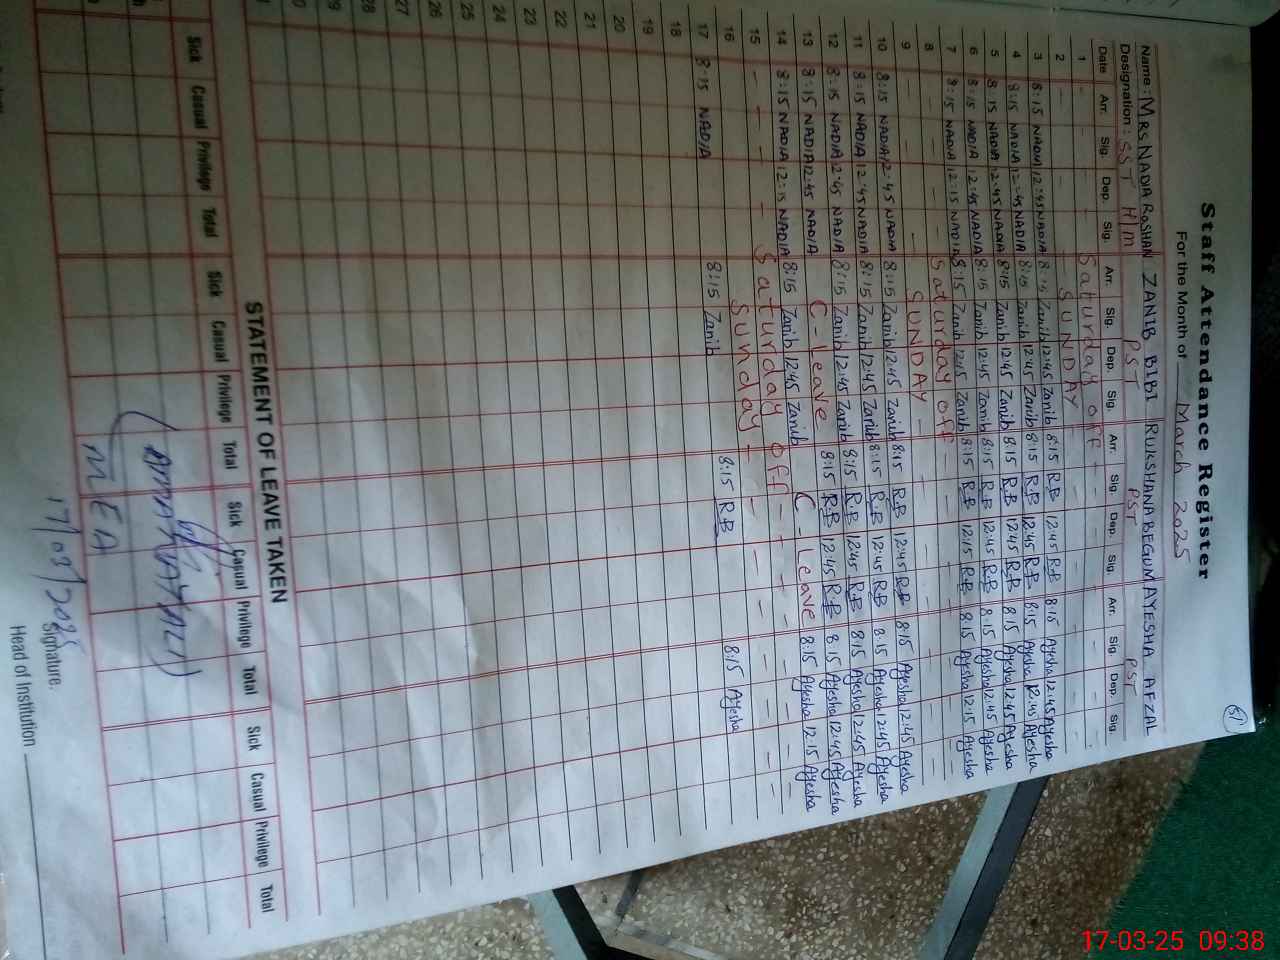 51
Staff Attendance Register
For the Month of March 2025
Name : MRS NADIA ROSHAN ZANIB BIBI RUKSHANA BEGUM AYESHA AFZAL
Designation : SST H/M PST PST PST
Date Arr. Sig. Dep. Sig. Arr. Sig. Dep. Sig. Arr. Sig. Dep. Sig. Arr. Sig. Dep. Sig.
1 Saturday off
2 SUNDAY
3 8:15 NADIA 12:45 NADIA 8:15 Zanib 12:45 Zanib 8:15 RB 12:45 RB 8:15 Ayesha 12:45 Ayesha
4 8:15 NADIA 12:45 NADIA 8:15 Zanib 12:45 Zanib 8:15 RB 12:45 RB 8:15 Ayesha 12:45 Ayesha
5 8:15 NADIA 12:45 NADIA 8:15 Zanib 12:45 Zanib 8:15 RB 12:45 RB 8:15 Ayesha 12:45 Ayesha
6 8:15 NADIA 12:45 NADIA 8:15 Zanib 12:45 Zanib 8:15 RB 12:45 RB 8:15 Ayesha 12:45 Ayesha
7 8:15 NADIA 12:15 NADIA 8:15 Zanib 12:45 Zanib 8:15 RB 12:15 RB 8:15 Ayesha 12:15 Ayesha
8 Saturday off
9 SUNDAY
10 8:15 NADIA 12:45 NADIA 8:15 Zanib 12:45 Zanib 8:15 RB 12:45 RB 8:15 Ayesha 12:45 Ayesha
11 8:15 NADIA 12:45 NADIA 8:15 Zanib 12:45 Zanib 8:15 RB 12:45 RB 8:15 Ayesha 12:45 Ayesha
12 8:15 NADIA 12:45 NADIA 8:15 Zanib 12:45 Zanib 8:15 RB 12:45 RB 8:15 Ayesha 12:45 Ayesha
13 8:15 NADIA 12:45 NADIA C-Leave 8:15 RB 12:45 RB 8:15 Ayesha 12:45 Ayesha
14 8:15 NADIA 12:15 NADIA 8:15 Zanib 12:45 Zanib C-Leave 8:15 Ayesha 12:15 Ayesha
15 Saturday off
16 Sunday
17 8:15 NADIA 8:15 Zanib 8:15 RB 8:15 Ayesha
18
19
20
21
22
23
24
25
26
27
28
29
30
STATEMENT OF LEAVE TAKEN
Sick Casual Privilege Total Sick Casual Privilege Total Sick Casual Privilege Total Sick Casual Privilege Total
MEA
17/03/2025
Signature.
Head of Institution
17-03-25 09:38